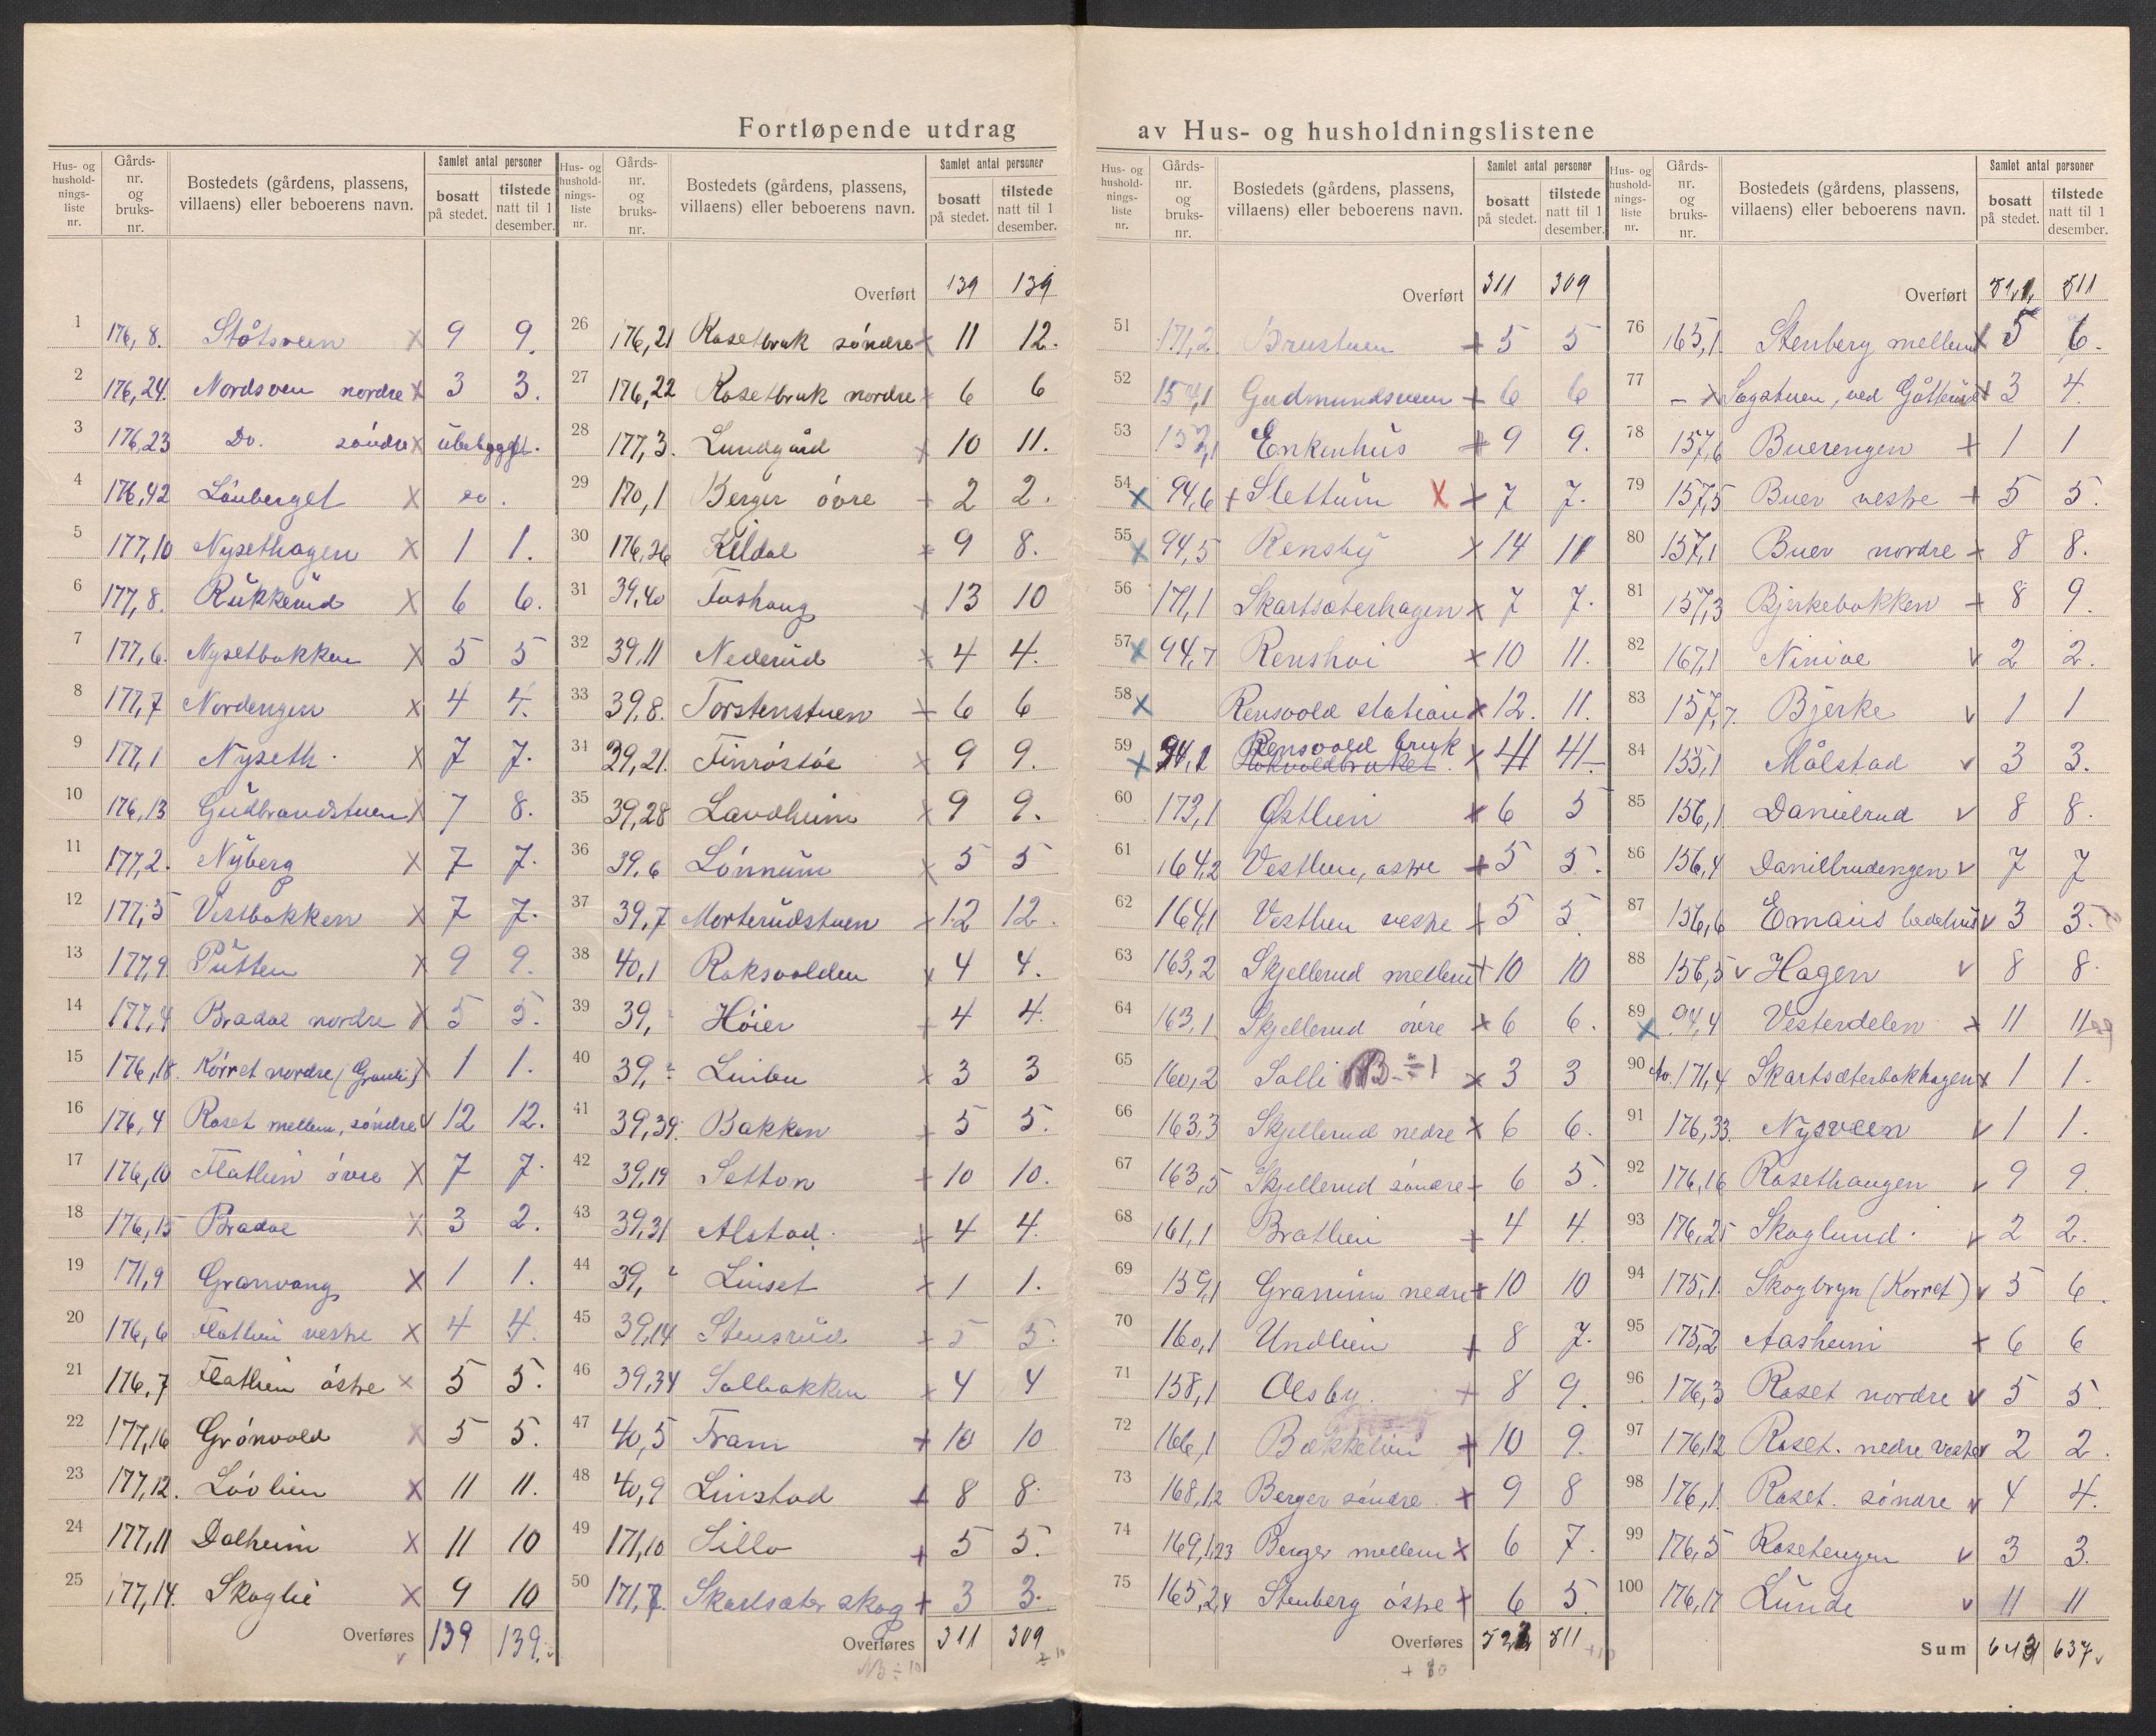 Fortløpende utdrag av Hus- og husholdningslistene
Hus- og husholdningsliste nr. | Gårdsnr. og bruksnr. | Bostedets (gårdens, plassens, villaens) eller beboerens navn. | Samlet antal personer bosatt på stedet. | tilstede natt til 1 desember.
1 176,8. Støtsveen X 9 9.
2 176,24. Nordsveen nordre X 3 3.
3 176,23 Do. søndre X ubebygget.
4 176,42 Lønberget X do.
5 177,10 Nysethagen X 1 1.
6 177,8. Rukkerud X 6 6.
7 177,6. Nysetbakken X 5 5
8 177,7 Nordengen X 4 4.
9 177,1 Nyseth X 7 7.
10 176,13 Gudbrandstuen X 7 8.
11 177,2. Nyberg X 7 7.
12 177,5 Vestbakken X 7 7.
13 177,9 Putten X 9 9.
14 177,4 Bradal nordre X 5 5.
15 176,18. Körret nordre (Granli) X 1 1.
16 176,4 Roset mellem, søndre v 12 12.
17 176,10 Flatlien øvre X 7 7.
18 176,15 Bradal X 3 2.
19 171,9 Granvang X 1 1.
20 176,6 Flatlien vestre X 4 4.
21 176,7 Flatlien østre X 5 5.
22 177,16 Grønvold X 5 5.
23 177,12. Løvlien X 11 11.
24 177,11 Dalheim X 11 10
25 177,14. Skoglie X 9 10
Overføres 139 139.
Overført 139 139
26 176,21 Rosetbruk søndre X 11 12.
27 176,22 Rosetbruk nordre X 6 6
28 177,3. Lundgård X 10 11.
29 170,1 Berger øvre + 2 2.
30 176,26 Kildal X 9 8.
31 39,40 Foshaug X 13 10
32 39,11 Nederud X 4 4.
33 39,8. Torstenstuen + 6 6
34 39,21. Finröstöe X 9 9.
35 39,28 Landheim X 9 9.
36 39,6 Lønnum X 5 5
37 39,7 Morterudstuen X 12 12.
38 40,1 Roksvolden X 4 4.
39 39, Höier + 4 4.
40 39, Linbu X 3 3
41 39,39. Bakken + 5 5.
42 39,19 Setton + 10 10.
43 39,31 Alstad + 4 4.
44 39, Linset X 1 1.
45 39,14 Stensrud + 5 5.
46 39,34 Solbakken X 4 4
47 40,5 Fram + 10 10
48 40,9 Linstad + 8 8.
49 171,10 Lillo + 5 5.
50 171,7. Skartsæter skog + 3 3.
Overføres 311 309
NB ÷ 10
Overført 311 309
51 171,2 Brustuen + 5 5
52 154,1 Gudmundsveen + 6 6
53 Enkenhus + 9 9.
54 X 94,6 + Slettum X X 7 7.
55 X 94,5 Rensby X 14 11
56 171,1 Skartsæterhagen X 7 7.
57 X 94,7 Renshoi X 10 11.
58 X Rensvold station X 12. 11.
59 X 94,1 Rensvold bruk X 41 41
60 173,1 Østlien X 6 5
61 164,2 Vestlien, østre + 5 5.
62 164,1 Vestlien vestre + 5 5.
63 163,2 Skjellerud mellem + 10 10
64 163,1 Skjellerud øvre X 6 6.
65 160,2 Solli NB ÷ 1 X 3 3
66 163,3 Skjellerud nedre X 6 6.
67 163,5 Skjellerud søndre + 6 5.
68 161,1 Bratlien + 4 4.
69 159,1 Granum nedre + 10 10
70 160,1 Undlien + 8 7.
71 158,1 Olsby + 8 9.
72 166,1 Bækkelien + 10 9.
73 168,1,2 Berger søndre X 9 8
74 169,1,23 Berger mellem X 6 7.
75 165,2,4 Stenberg østre + 6 5.
Overføres 511
Overført 511
76 165,1 Stenberg mellem X 5 6.
77 – X Sagstuen, ved Gåtterud + 3 4.
78 157,6 Buerengen + 1 1
79 157,5 Buer vestre + 5 5.
80 157,1 Buer nordre X 8 8.
81 157,3 Bjerkebakken + 8 9.
82 167,1 Ninive v 2 2.
83 157,7. Bjerke v 1 1
84 155,1 Målstad v 3 3.
85 156,1 Danielrud v 8 8.
86 156,4 Danielrudengen v 7 7
87 156,6 Emaus bedehus v 3 3.
88 156,5 v Hagen v 8 8.
89 X 94,4 Vesterdelen X 11 11
90 171,4 Skartsæterbakhagen X 1 1.
91 176,33. Nysveen v 1 1.
92 176,16 Rosethaugen v 9 9.
93 176,25 Skoglund v 2 2.
94 175,1. Skogbryn (Korret) v 5 6.
95 175,2 Aasheim X 6 6
96 176,3 Roset nordre v 5 5.
97 176,12 Roset. nedre vestre v 2 2.
98 176,1. Roset. søndre v 4 4.
99 176,5 Rosetengen v 3 3.
100 176,17 Lunde v 11 11
Sum 643 637.